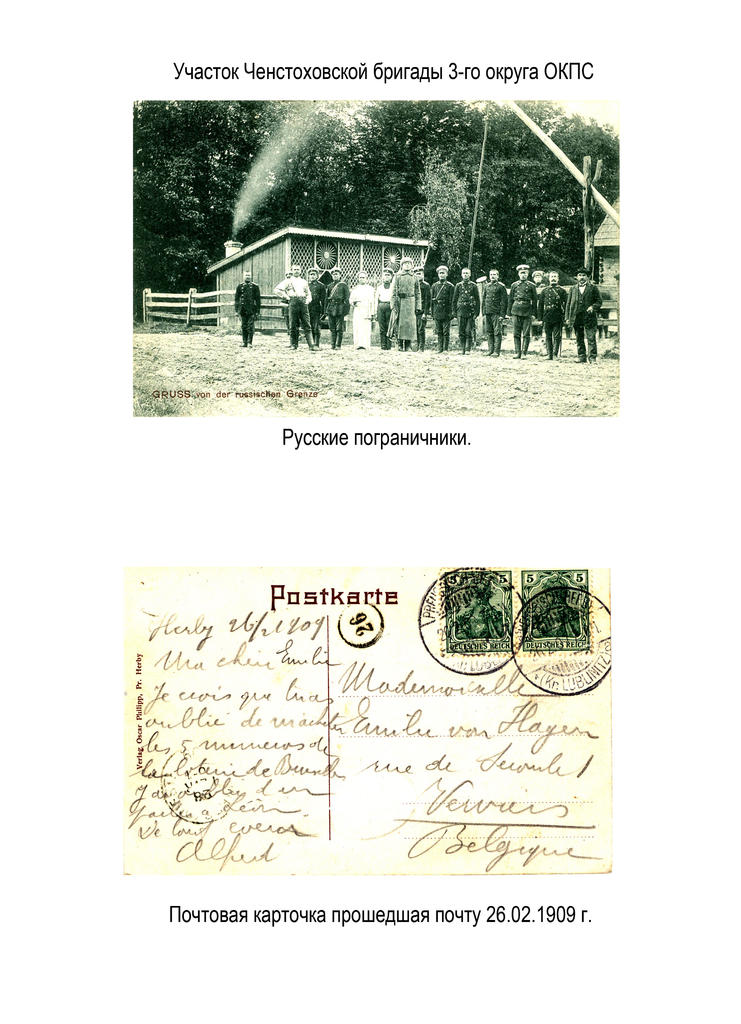 Участок Ченстоховской бригады 3-го округа ОКПС
GRUSS von der russischen Grenze
Русские пограничники.
Postkarte
5 5
DEUTSCHES REICH DEUTSCHES REICH
26
(Kr. LUBLINITZ)
Verlag Oscar Phillipp, Pr. Herby
Herby 26/2 1909
Ma chère Emilie
Je crois que tu as
oublié de m'acheter
les 5 numeros de
la loterie de
De tout coeur
Alfred
Mademoiselle
Emilie von Hagen
rue de
Verviers
Belgique
Почтовая карточка прошедшая почту 26.02.1909 г.